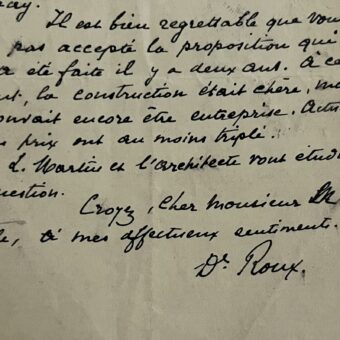 ay.
Il est bien regrettable que vou
pas accepté la proposition qui
a été faite il y a deux ans. À ce
nt, la construction était chère, ma
ouvait encore être entreprise. Actu
s prix ont au moins triplé.
L. Martin et l'architecte vont étudi
uestion.
Croyez, cher Monsieur
le, à mes affectueux sentiments.
Dr Roux.